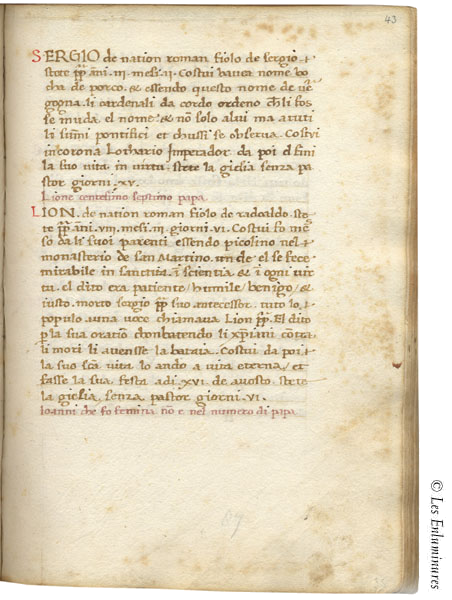 43
SERGIO de nation roman fiolo de sergio
stete pp̄ āni .iii. mesi .ii. Costui haueа nome bo
cha de porco. & essendo questo nome de ue
gogna li cardenali da cordo ordeno ch̄ li fos
se muda el nome: & nō solo alui ma atuti
li sūmi pontifici et chussi se obserua. Costui
incorona Lothario Imperador da poi el fini
la suo uita in uirtu. stete la giesia senza pa
stor giorni .xv.
Lione centesimo septimo papa.
LION. de nation roman fiolo de radoaldo ste
te pp̄ āni .viii. mesi .iii. giorni .vi. Costui fo me
so da li suoi parenti essendo picolino nel
monasterio de san Martino. un de el se fece
mirabile in sanctita i scientia & i ogni uir
tu. el dito era patiente / humile / benigo / &
iusto. morto sergio pp̄ suo antecessor. tuto lo
populo. una uoce chiamaua Lion pp̄. El dito
p̱ la sua oratiō cōbatendo li xp̄iani contra
li mori li auensse la bataia. Costui da poi
la suo sc̄ta uita lo ando a uita eterna / et
fasse la sua festa adi .XVI. de auosto stete
la giesia, senza pastor giorni .vi.
Ioanni che fo femina nō e nel numero di papa.
© Les Enluminures